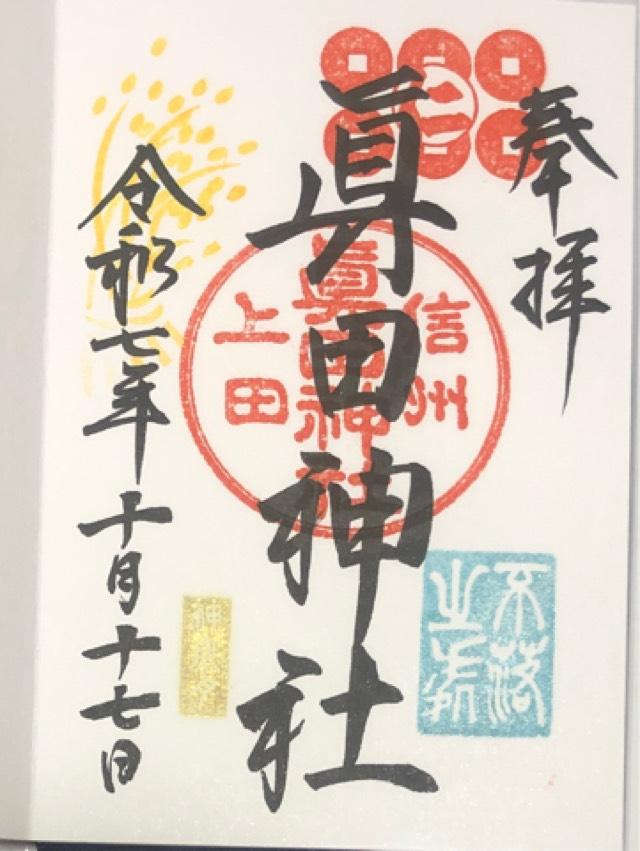 奉拝
眞田神社
信州
眞田神社
上田
不落
之
神嘗祭
令和七年十月十七日